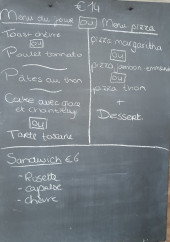 €14
Menu du jour
ou
Menu pizza
Toast chèvre
ou
Poulet tomato
Pâtes au thon
Cake avec glace
et chantilly
ou
Tarte
pizza margarita
ou
pizza jambon-emmental
ou
pizza thon
+
Dessert.
Sandwich €6
- Rosette
- chèvre